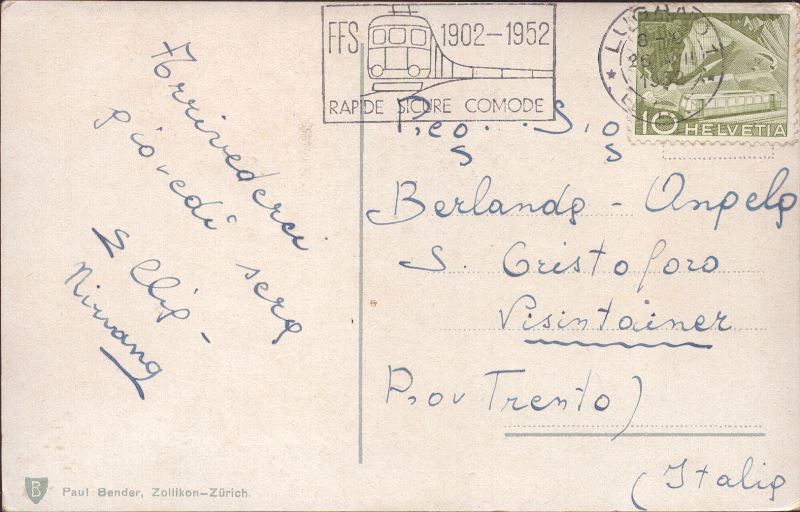 Arrivederci
giovedì sera
Ellia -
Nirvana
FFS 1902-1952
RAPIDE SICURE COMODE
LUGANO 1
1952
10 HELVETIA
Preg. Sig
Berlanda - Angela
S. Cristoforo
Visintainer
Prov Trento)
(Italia
B Paul Bender, Zollikon-Zürich.